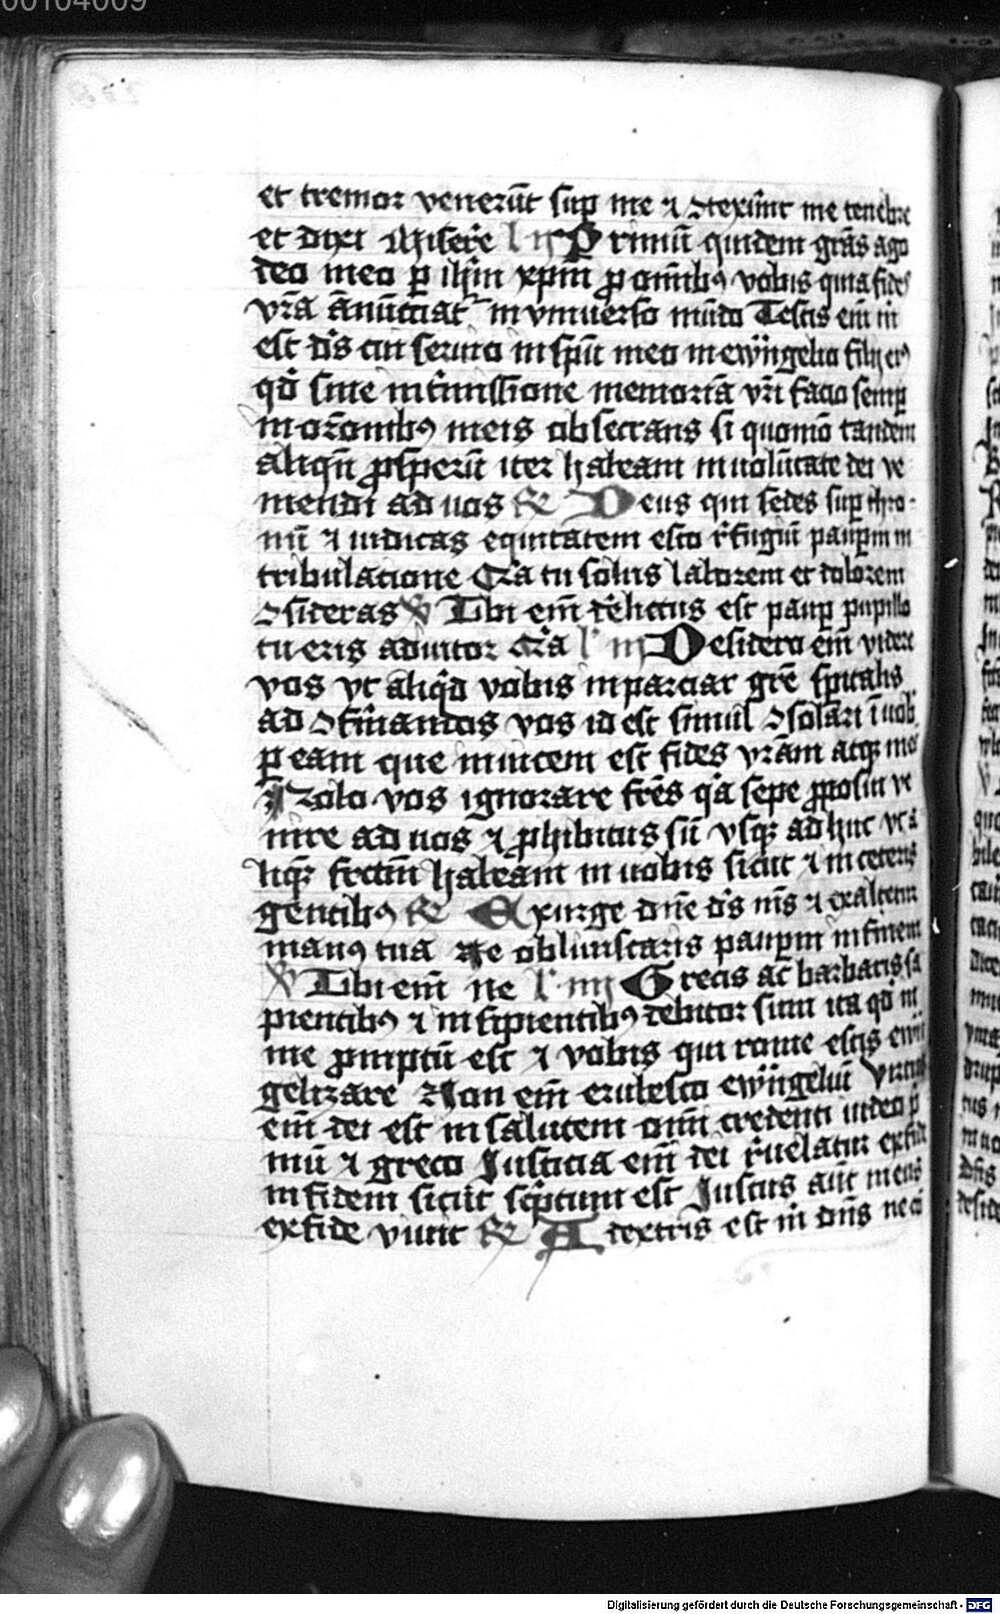 00104009
et tremor venerūt sup me ⁊ ꝯtexūnt me tenebre
et dixi Misere l ij Primū quidem grās ago
deo meo ꝑ ihm xpm ꝓ omībꝯ vobis quia fides
vrā ānūtiat in vniuerso mūdo Testis em m
est ds cui seruio in spū meo in ewāngelio filij eiꝯ
qd sine intmissione memoriā vri facio semꝑ
in orōnibꝯ meis obsecrans si quomō tandem
aliqn ꝓsperū iter habeam in volūtate dei ve
niendi ad uos ℟ Deus qui sedes suꝑ thro
nū ⁊ iudicas equitatem esto rfugiū pauꝑum in
tribulatione Qia tu solus laborem et dolorem
ꝯsideras ℣ Tibi em relictus est pauꝑ pupillo
tu eris adiutor Qia l iij Desidero em videre
vos vt aliqd vobis inpartiar gre spūalis
ad ꝯfirmandos vos id est simul ꝯsolari ī uob
ꝑ eam que inuicem est fides vrām atqꝫ meā
Nolo vos ignorare frēs qa sepe ꝓposui ve
nire ad uos ⁊ ꝓhibitus sū vsqꝫ adhuc vt a
liqꝫ fructum habeam in uobis sicut ⁊ in ceteris
gentibꝯ ℟ Exurge dne ds ms ⁊ exaltetur
manꝯ tua Ne obliuiscaris pauꝑum in finem
℣ Tibi em ne l iiij Grecis ac barbaris sa
pientibꝯ ⁊ insipientibꝯ debitor sum ita qd in
me ꝓmptū est ⁊ vobis qui rome estis ewā
gelizare Non em erubesco ewāngeliū Virtus
em dei est in salutem omī credenti iudeo p
mū ⁊ greco Justicia em dei reuelatur ex fide
in fidem sicut scptum est Justus aūt meus
ex fide viuit ℟ A dextris est m dns ne cō
Digitalisierung gefördert durch die Deutsche Forschungsgemeinschaft - DFG